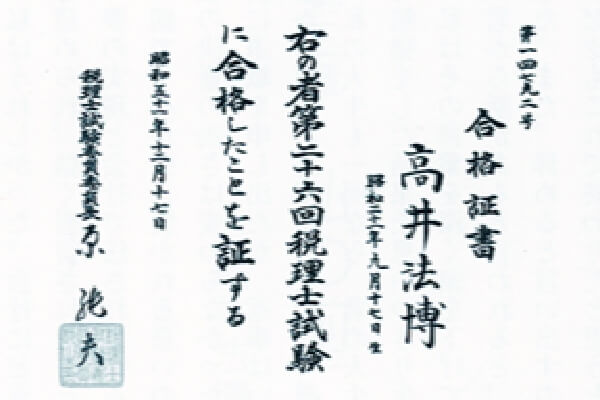 第一四七九二号
合格証書
高井法博
昭和二十一年九月十七日生
右の者第二十六回税理士試験
に合格したことを証する
昭和五十一年十二月十七日
税理士試験委員委員長 原 純夫